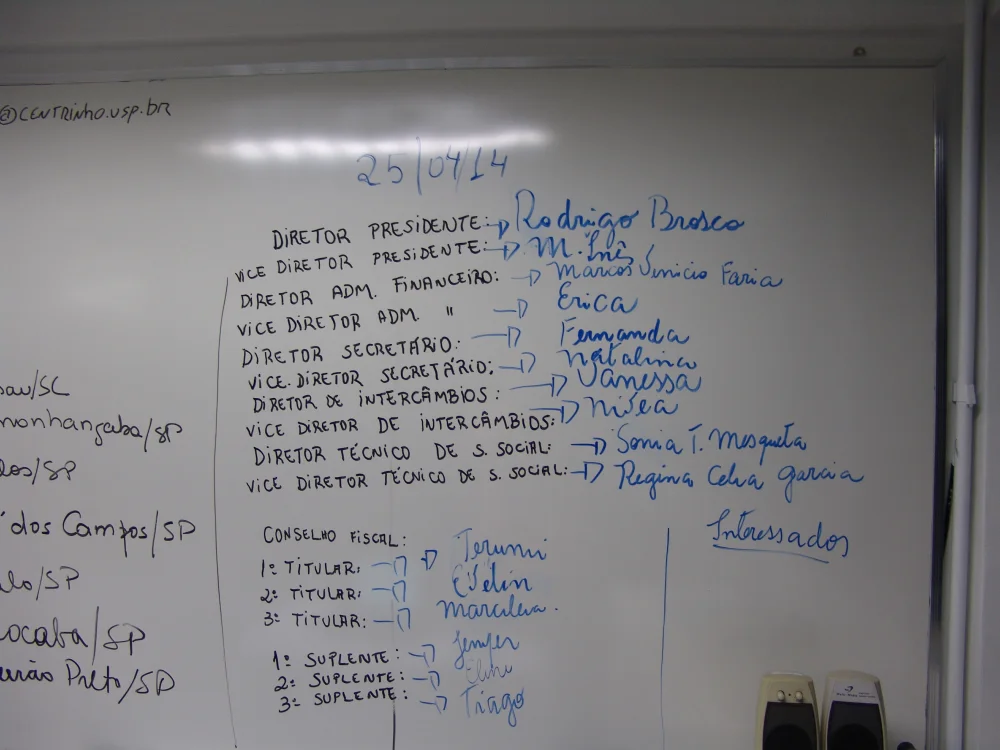 @CENTRINHO.USP.BR
25/04/14
DIRETOR PRESIDENTE: Rodrigo Brosco
VICE DIRETOR PRESIDENTE: M. Inês
DIRETOR ADM. FINANCEIRO: Marcos Venicio Faria
VICE DIRETOR ADM. " Erica
DIRETOR SECRETÁRIO: Fernanda
VICE. DIRETOR SECRETÁRIO: Natalina
DIRETOR DE INTERCÂMBIOS: Vanessa
VICE DIRETOR DE INTERCÂMBIOS: Nísea
DIRETOR TÉCNICO DE S. SOCIAL: Sonia T. Mesqueta
VICE DIRETOR TÉCNICO DE S. SOCIAL: Regina Celia Garcia
CONSELHO FISCAL:
1º TITULAR: Terumi
2º TITULAR:
3º TITULAR:
1º SUPLENTE:
2º SUPLENTE:
3º SUPLENTE: Tiago
Interessados
/SC
monhangaba/SP
/SP
dos Campos/SP
/SP
ocaba/SP
eirão Preto/SP